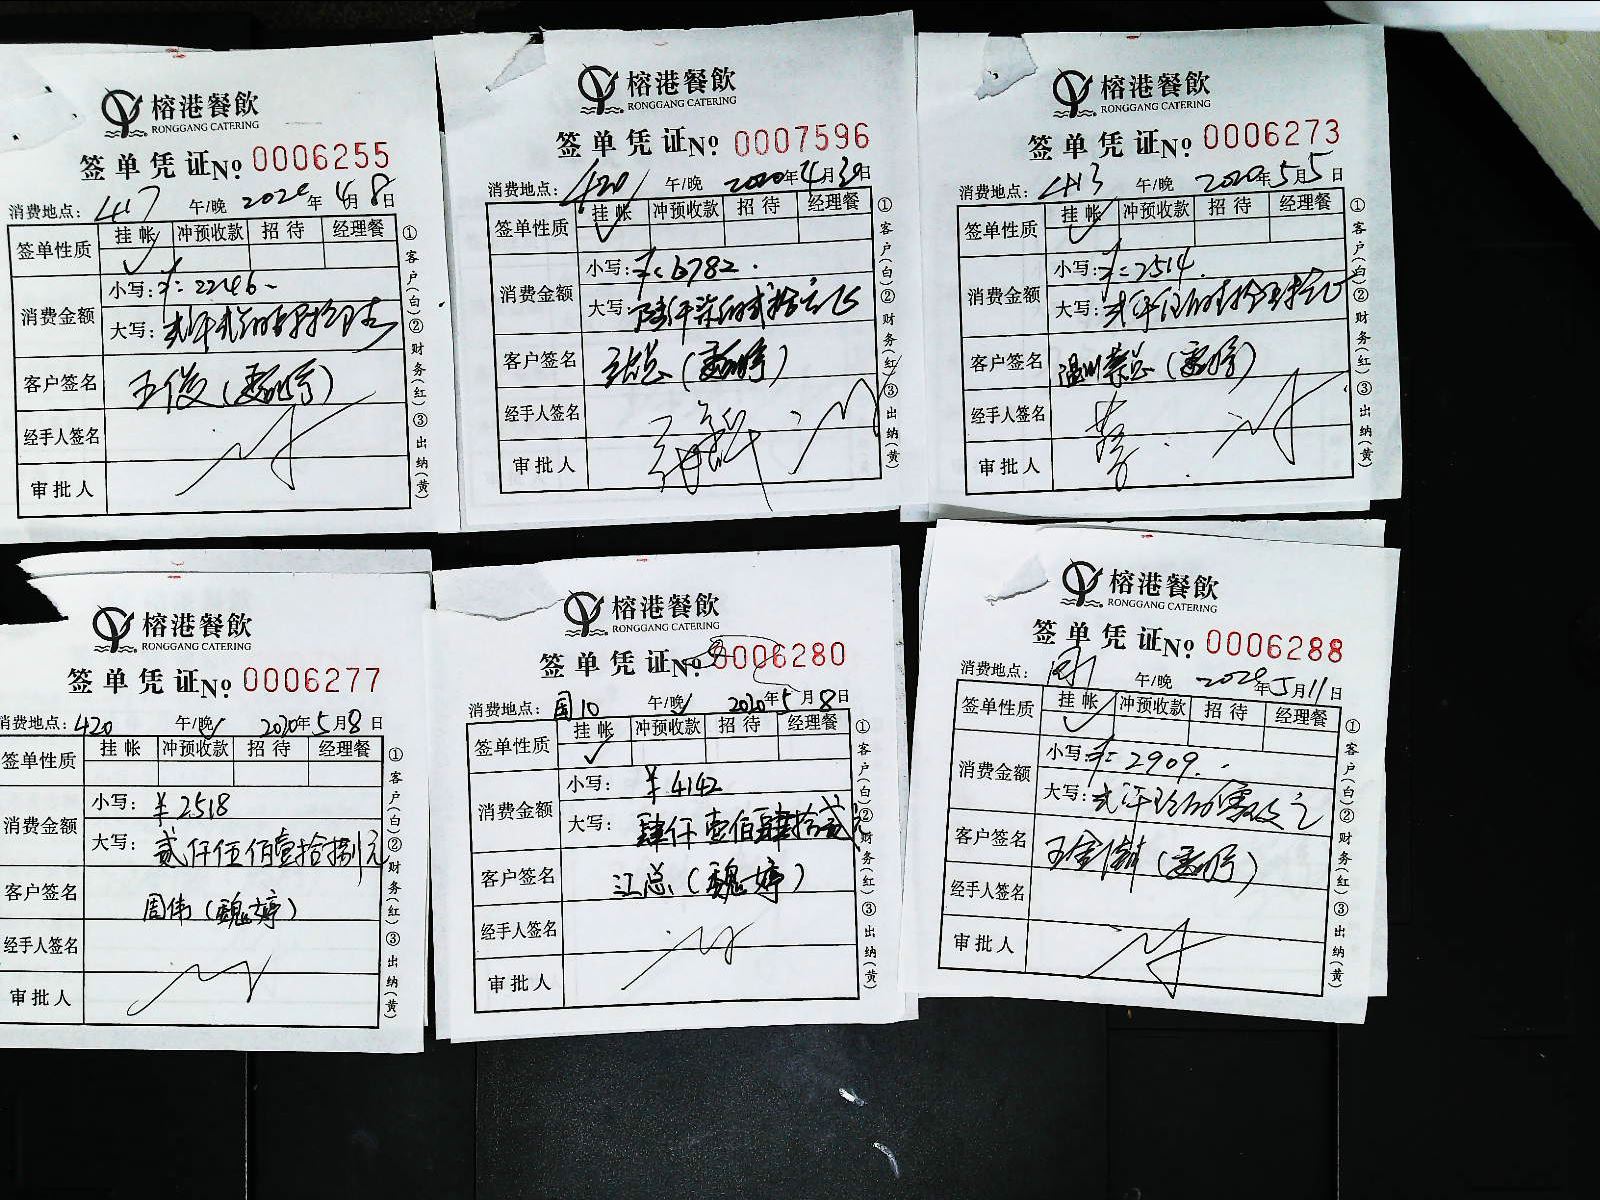 榕港餐飲
RONGGANG CATERING
签单凭证 No. 0006255
消费地点: 417 午/晚 2020年4月8日
签单性质 挂帐 冲预收款 招待 经理餐
✓
消费金额 小写: ¥: 2246
大写:
客户签名 王俊（魏婷）
经手人签名
审批人
①客户(白)②财务(红)③出纳(黄)
榕港餐飲
RONGGANG CATERING
签单凭证 No. 0007596
消费地点: 420 午/晚 2020年4月30日
签单性质 挂帐 冲预收款 招待 经理餐
✓
消费金额 小写: ¥: 6782.
大写: 陆仟柒佰
客户签名 （魏婷）
经手人签名
审批人
①客户(白)②财务(红)③出纳(黄)
榕港餐飲
RONGGANG CATERING
签单凭证 No. 0006273
消费地点: 413 午/晚 2020年5月5日
签单性质 挂帐 冲预收款 招待 经理餐
✓
消费金额 小写: ¥: 2514.
大写: 贰仟伍佰
客户签名 温州蔡总（魏婷）
经手人签名
审批人
①客户(白)②财务(红)③出纳(黄)
榕港餐飲
RONGGANG CATERING
签单凭证 No. 0006277
消费地点: 420 午/晚✓ 2020年5月8日
签单性质 挂帐 冲预收款 招待 经理餐
消费金额 小写: ¥2518
大写: 贰仟伍佰壹拾捌元
客户签名 周伟（魏婷）
经手人签名
审批人
①客户(白)②财务(红)③出纳(黄)
榕港餐飲
RONGGANG CATERING
签单凭证 No. 0006280
消费地点: 周10 午/晚✓ 2020年5月8日
签单性质 挂帐 冲预收款 招待 经理餐
✓
消费金额 小写: ¥4142
大写: 肆仟壹佰肆拾贰元
客户签名 江总（魏婷）
经手人签名
审批人
①客户(白)②财务(红)③出纳(黄)
榕港餐飲
RONGGANG CATERING
签单凭证 No. 0006288
消费地点: 午/晚 2020年5月11日
签单性质 挂帐 冲预收款 招待 经理餐
✓
消费金额 小写: ¥: 2909.
大写: 贰仟玖佰零玖元
客户签名 （魏婷）
经手人签名
审批人
①客户(白)②财务(红)③出纳(黄)